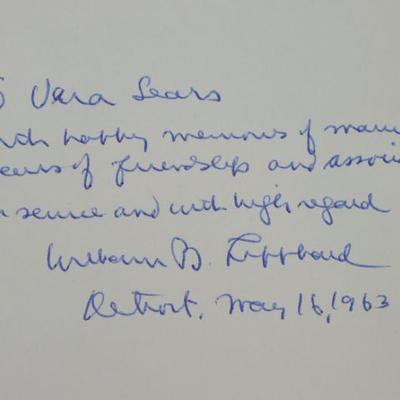 o Vera Sears
with happy memories of man
years of friendship and associ
n service and with high regard
William B. Lipphard
Detroit, May 16, 1963